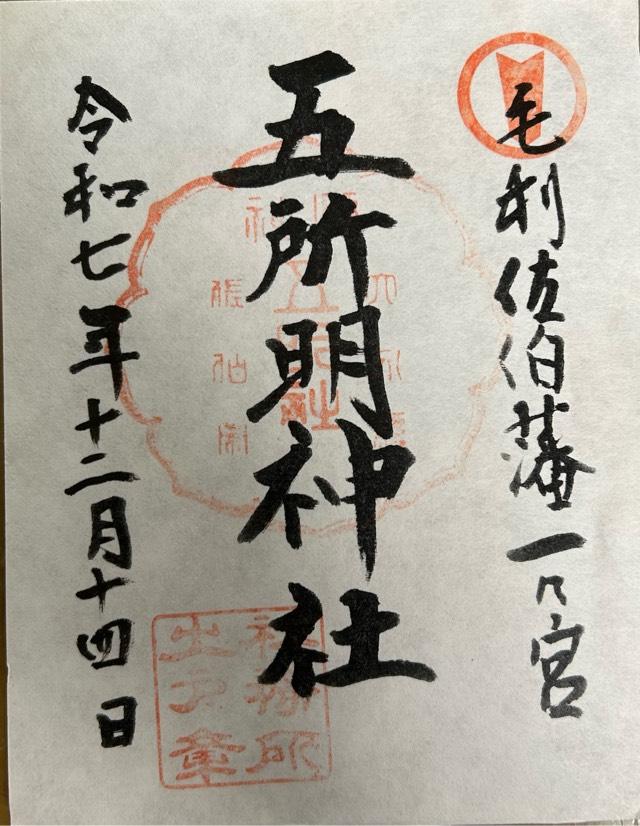 毛利佐伯藩一ノ宮
五所明神社
令和七年十二月十四日
社務所
之印章